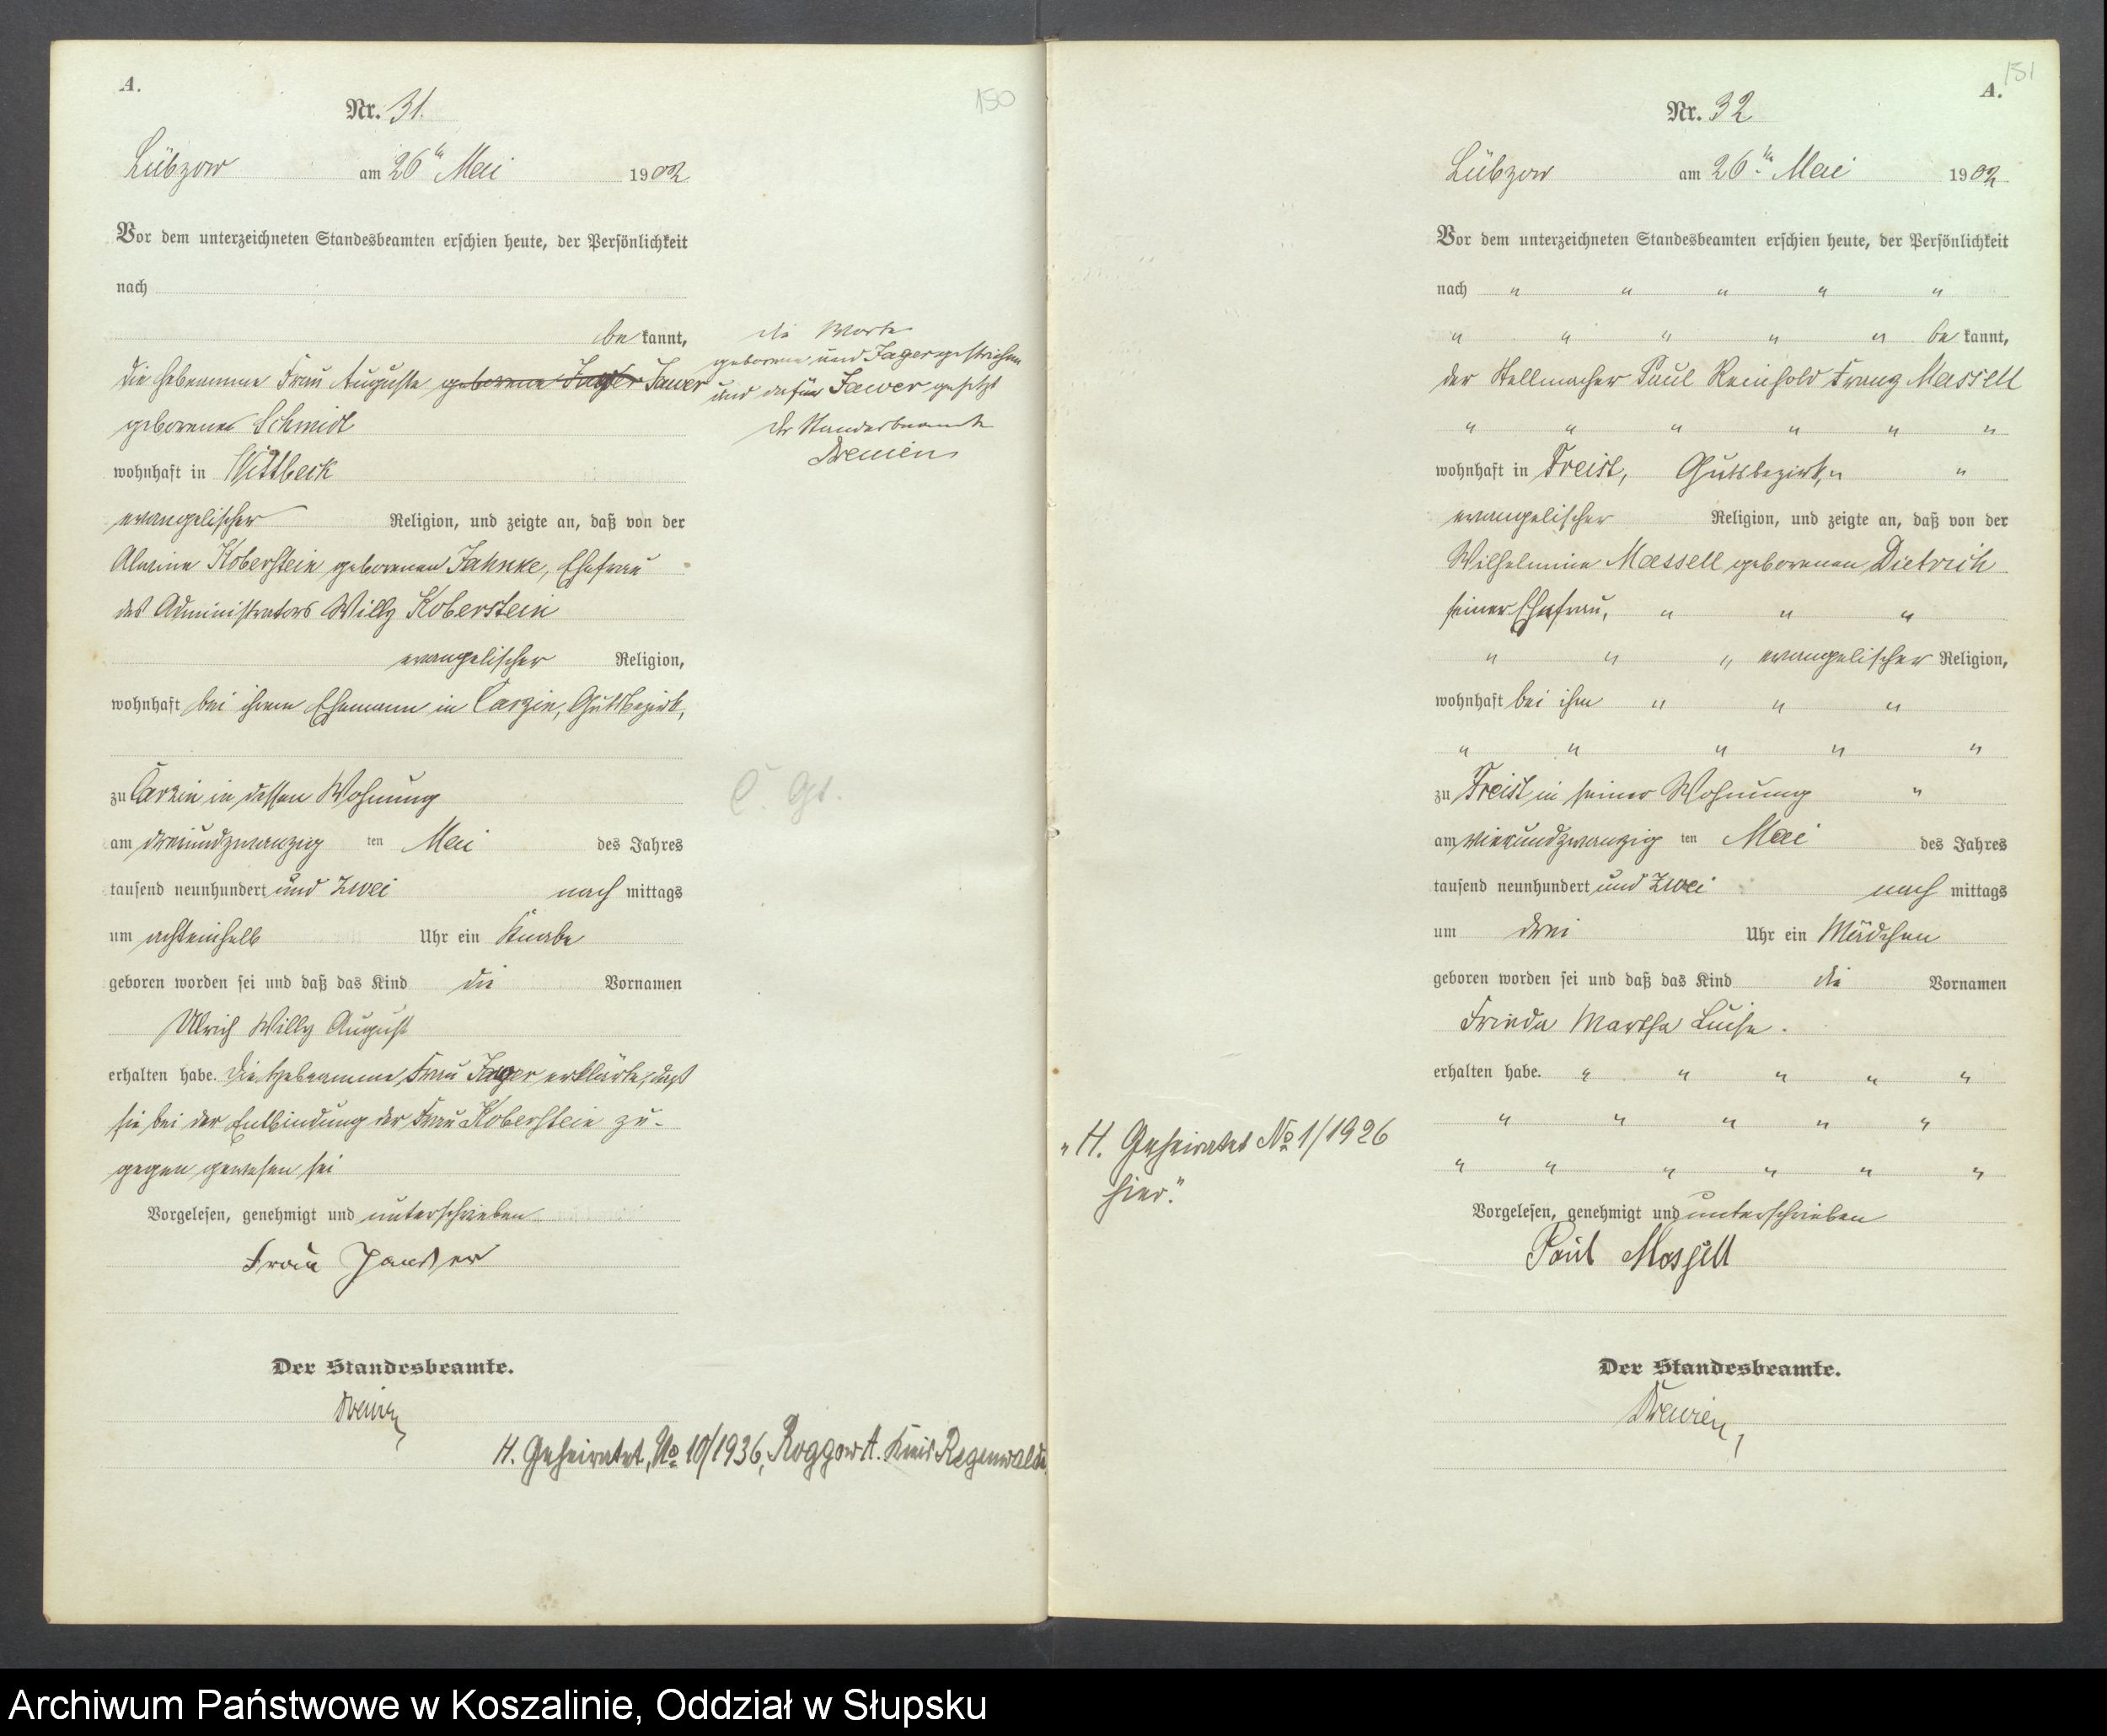 A.
Nr. 31.
150
Lübzow am 26ten Mai 1902
Vor dem unterzeichneten Standesbeamten erschien heute, der Persönlichkeit
nach
be kannt,
die Hebeamme Frau Auguste geborene Jager Jawer
geborene Schmidt
wohnhaft in Wittbeck
evangelischer Religion, und zeigte an, daß von der
Alwine Koberstein geborenen Jahnke, Ehefrau
des Administrators Willy Koberstein
evangelischer Religion,
wohnhaft bei ihrem Ehemann in Carzin, Gutsbezirk,
zu Carzin in dessen Wohnung
am dreiundzwanzig ten Mai des Jahres
tausend neunhundert und zwei nach mittags
um achteinhalb Uhr ein Knabe
geboren worden sei und daß das Kind die Vornamen
Ulrich Willy August
erhalten habe. Die Hebeamme Frau Jawer erklärte, daß
sie bei der Entbindung der Frau Koberstein zu-
gegen gewesen sei
Vorgelesen, genehmigt und unterschrieben
Frau
Der Standesbeamte.
die Worte
geborene und Jager gestrichen
und dafür Jawer gesetzt
Der Standesbeamte
C. Gs.
H. Geheiratet, No 10/1936, Roggow A. Kreis Regenwalde
151
A.
Nr. 32
Lübzow am 26ten Mai 1902
Vor dem unterzeichneten Standesbeamten erschien heute, der Persönlichkeit
nach " " " " "
" " " " " be kannt,
der Stellmacher Paul Reinhold Franz Massell
" " " " " "
wohnhaft in Freist, Gutsbezirk, " "
evangelischer Religion, und zeigte an, daß von der
Wilhelmine Massell geborenen Dietrich
seiner Ehefrau, " " "
" " " evangelischer Religion,
wohnhaft bei ihm " " "
" " " " "
zu Freist in seiner Wohnung "
am vierundzwanzig ten Mai des Jahres
tausend neunhundert und zwei nach mittags
um drei Uhr ein Mädchen
geboren worden sei und daß das Kind die Vornamen
Frieda Martha Luise.
erhalten habe. " " " " "
" " " " "
" " " " " "
Vorgelesen, genehmigt und unterschrieben
Paul Massell
Der Standesbeamte.
"H. Geheiratet No 1/1926
hier."
Archiwum Państwowe w Koszalinie, Oddział w Słupsku